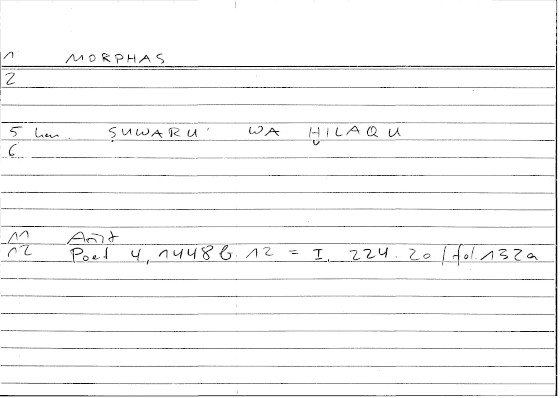 1 MORPHAS
2
5 hem. ṢUWARUʾ WA ḪILAQU
6
11 Arist
12 Poet 4, 1448 b. 12 = I. 224. 20 / fol. 132a